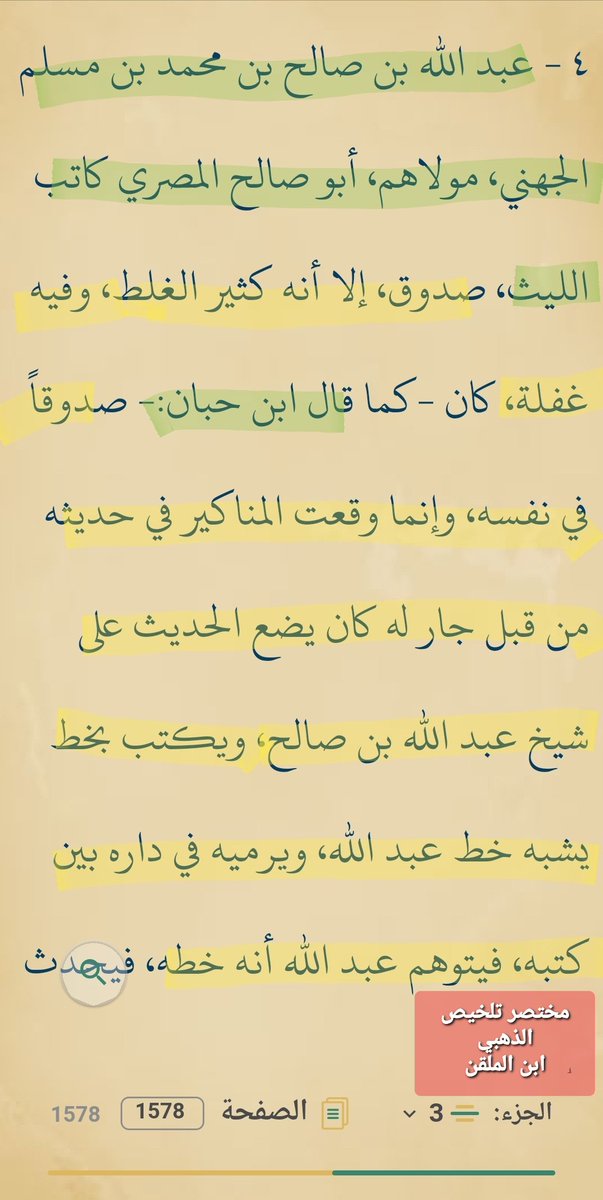 ٤ - عبد الله بن صالح بن محمد بن مسلم
الجهني، مولاهم، أبو صالح المصري كاتب
الليث، صدوق، إلا أنه كثير الغلط، وفيه
غفلة، كان -كما قال ابن حبان:- صدوقاً
في نفسه، وإنما وقعت المناكير في حديثه
من قبل جار له كان يضع الحديث على
شيخ عبد الله بن صالح، ويكتب بخط
يشبه خط عبد الله، ويرميه في داره بين
كتبه، فيتوهم عبد الله أنه خطه، فيحدث
مختصر تلخيص
الذهبي
ابن الملقن
الجزء: 3 الصفحة 1578 1578